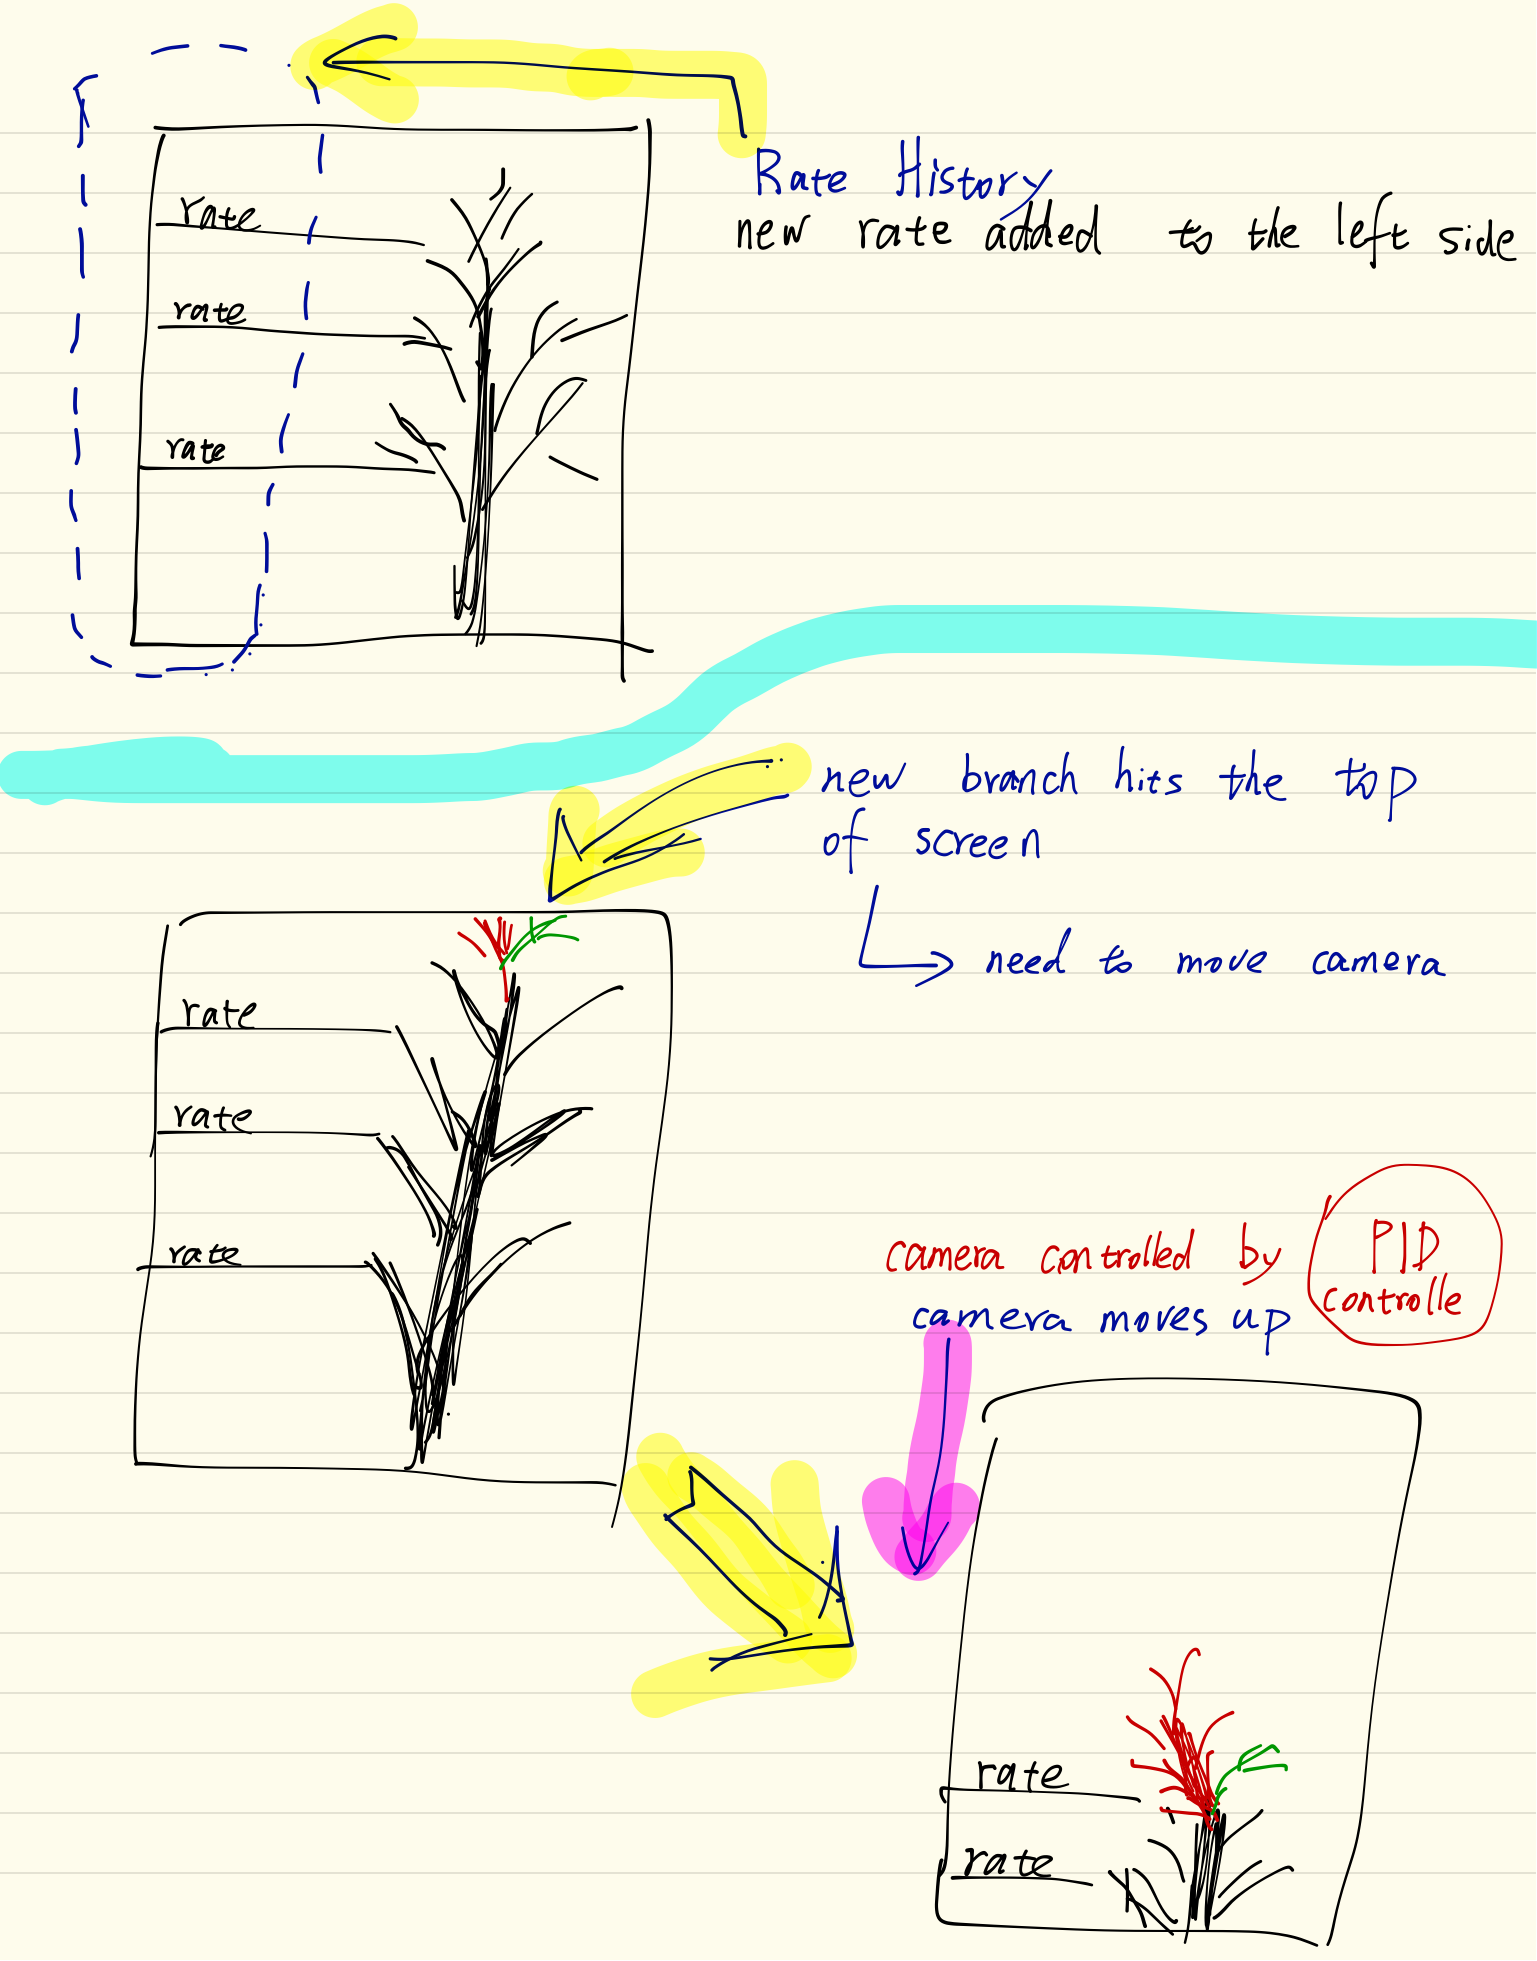 Rate History
new rate added to the left side
rate
rate
rate
new branch hits the top
of screen
need to move camera
rate
rate
rate
camera controlled by PID
controlle
camera moves up
rate
rate